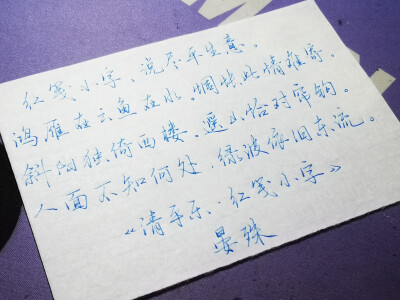 红笺小字，说尽平生意。
鸿雁在云鱼在水。惆怅此情难寄。
斜阳独倚西楼，遥山恰对帘钩。
人面不知何处，绿波依旧东流。
《清平乐·红笺小字》
晏殊